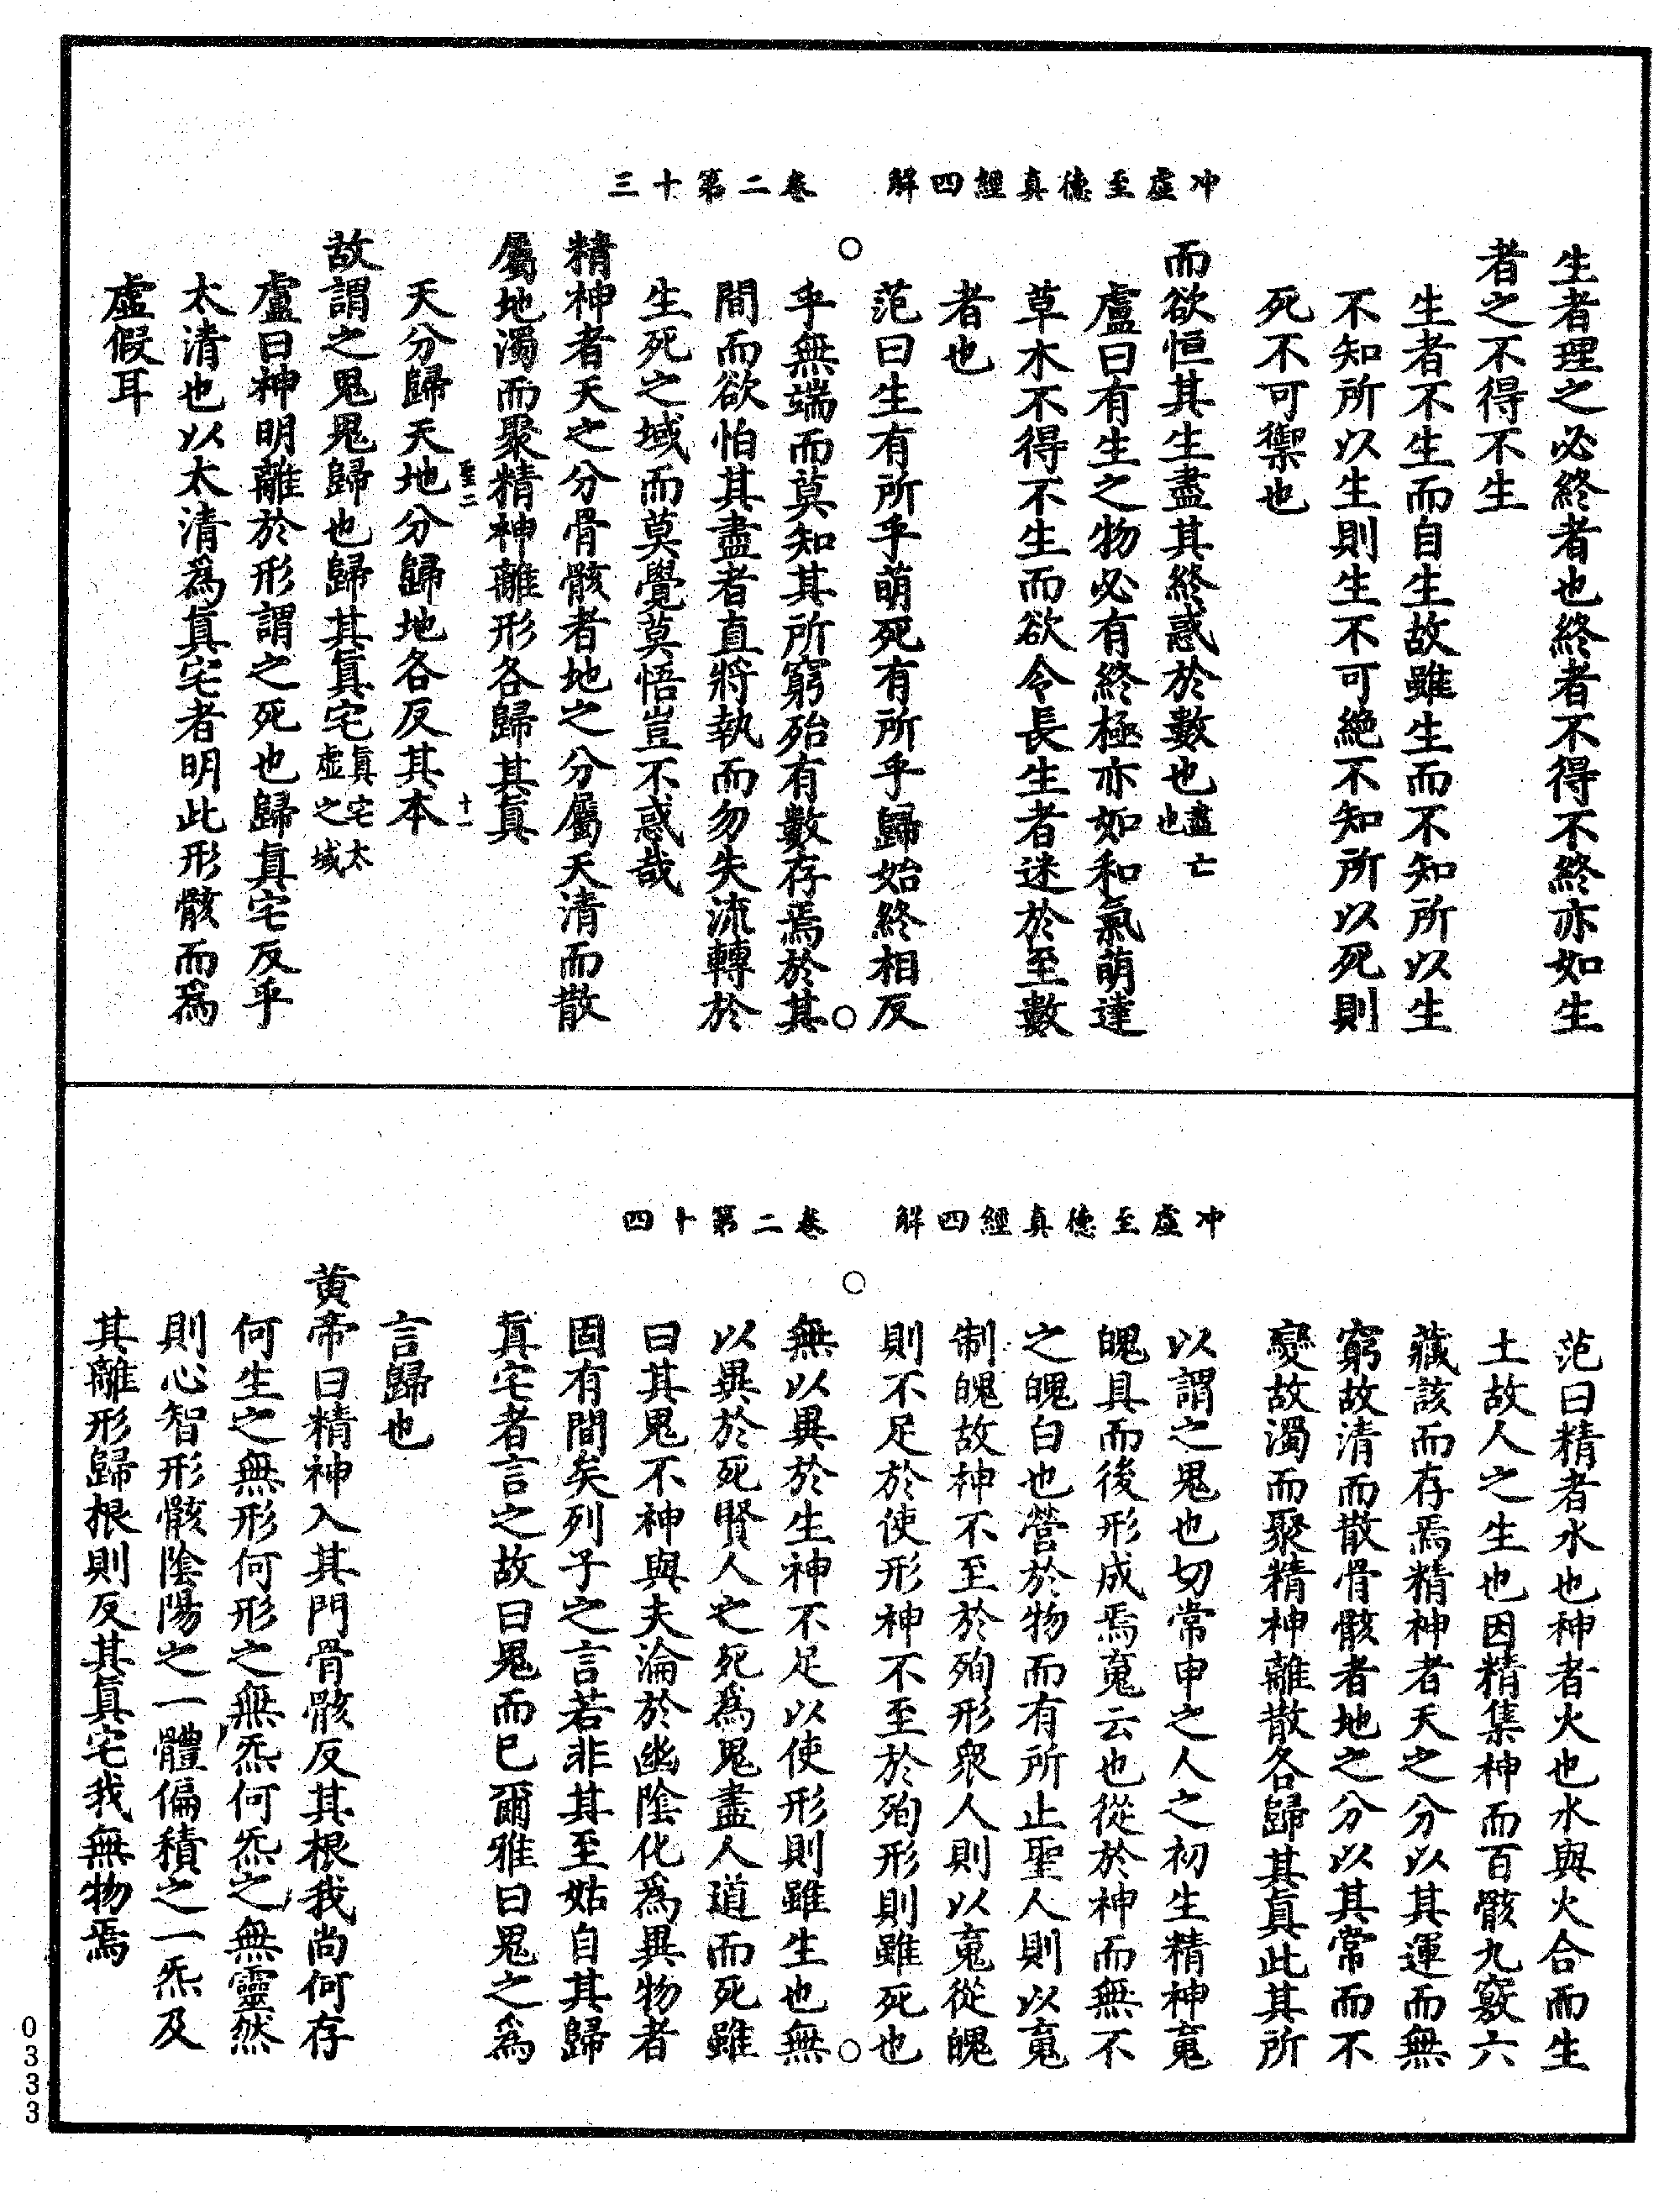 冲虛至德真經四解　卷二第十三
生者理之必終者也終者不得不終亦如生
者之不得不生
生者不生而自生故雖生而不知所以生
不知所以生則生不可絶不知所以死則
死不可禦也
而欲恒其生盡其終惑於數也盡亡也
盧曰有生之物必有終極亦如和氣萌達
草木不得不生而欲令長生者迷於至數
者也
范曰生有所乎萌死有所乎歸始終相反
乎無端而莫知其所窮殆有數存焉於其
間而欲怕其盡者直將執而勿失流轉於
生死之域而莫覺莫悟豈不惑哉
精神者天之分骨骸者地之分屬天清而散
屬地濁而聚精神離形各歸其真
聖二　十一
天分歸天地分歸地各反其本
故謂之鬼鬼歸也歸其真宅真宅太虛之域
盧曰神明離於形謂之死也歸真宅反乎
太清也以太清爲真宅者明此形骸而爲
虛假耳
冲虛至德真經四解　卷二第十四
范曰精者水也神者火也水與火合而生
土故人之生也因精集神而百骸九竅六
藏該而存焉精神者天之分以其運而無
窮故清而散骨骸者地之分以其常而不
變故濁而聚精神離散各歸其真此其所
以謂之鬼也切常申之人之初生精神䰟
魄具而後形成焉䰟云也從於神而無不
之魄白也營於物而有所止聖人則以䰟
制魄故神不至於殉形衆人則以䰟從魄
則不足於使形神不至於殉形則雖死也
無以異於生神不足以使形則雖生也無
以異於死賢人之死爲鬼盡人道而死雖
曰其鬼不神與夫淪於幽陰化爲異物者
固有間矣列子之言若非其至姑自其歸
真宅者言之故曰鬼而已爾雅曰鬼之爲
言歸也
黄帝曰精神入其門骨骸反其根我尚何存
何生之無形何形之無炁何炁之無靈然
則心智形骸陰陽之一體偏積之一炁及
其離形歸根則反其真宅我無物焉
0333